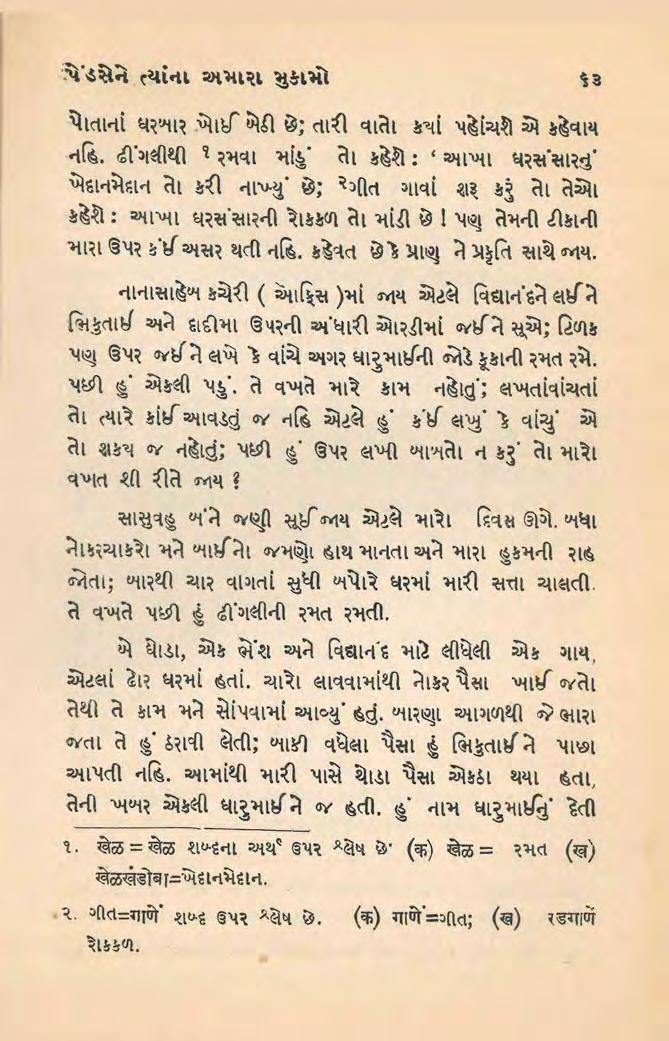 પેંડસેને ત્યાંના અમારા મુકામો ૬૩
પોતાનાં ઘરબાર ખોઈ બેઠી છે; તારી વાતો ક્યાં પહોંચશે એ કહેવાય
નહિ. ઢીંગલીથી ૧ રમવા માંડું તો કહેશે : ‘ આખા ઘરસંસારનું
ખેદાનમેદાન તો કરી નાખ્યું છે; ૨ગીત ગાવાં શરૂ કરું તો તેઓ
કહેશે : આખા ઘરસંસારની રોકકળ તો માંડી છે ! પણ તેમની ટીકાની
મારા ઉપર કંઈ અસર થતી નહિ. કહેવત છે કે પ્રાણ ને પ્રકૃતિ સાથે જાય.
નાનાસાહેબ કચેરી ( ઑફિસ )માં જાય એટલે વિદ્યાનંદને લઈને
ભિકુતાઈ અને દાદીમા ઉપરની અંધારી ઓરડીમાં જઈને સૂએ; ટિળક
પણ ઉપર જઈને લખે કે વાંચે અગર ધારુમાઈની જોડે કૂકાની રમત રમે.
પછી હું એકલી પડું. તે વખતે મારે કામ નહોતું; લખતાંવાંચતાં
તો ત્યારે કાંઈ આવડતું જ નહિ એટલે હું કંઈ લખું કે વાંચું એ
તો શક્ય જ નહોતું; પછી હું ઉપર લખી બાબતો ન કરું તો મારો
વખત શી રીતે જાય ?
સાસુવહુ બંને જણી સૂઈ જાય એટલે મારો દિવસ ઊગે. બધા
નોકરચાકરો મને બાઈનો જમણો હાથ માનતા અને મારા હુકમની રાહ
જોતા; બારથી ચાર વાગતાં સુધી બપોરે ઘરમાં મારી સત્તા ચાલતી.
તે વખતે પછી હું ઢીંગલીની રમત રમતી.
બે ઘોડા, એક ભેંશ અને વિદ્યાનંદ માટે લીધેલી એક ગાય,
એટલાં ઢોર ઘરમાં હતાં. ચારો લાવવામાંથી નોકર પૈસા ખાઈ જતો
તેથી તે કામ મને સોંપવામાં આવ્યું હતું. બારણા આગળથી જે ભારા
જતા તે હું ઠરાવી લેતી; બાકી વધેલા પૈસા હું ભિકુતાઈને પાછા
આપતી નહિ. આમાંથી મારી પાસે થોડા પૈસા એકઠા થયા હતા,
તેની ખબર એકલી ધારુમાઈને જ હતી. હું નામ ધારુમાઈનું દેતી
૧. खेळ = खेळ શબ્દના અર્થ ઉપર શ્લેષ છે· (क) खेळ = રમત (ख)
खेळखंडोबा=ખેદાનમેદાન.
૨. ગીત=गाणें શબ્દ ઉપર શ્લેષ છે. (क) गाणें=ગીત; (ख) रडगाणें
રોકકળ.